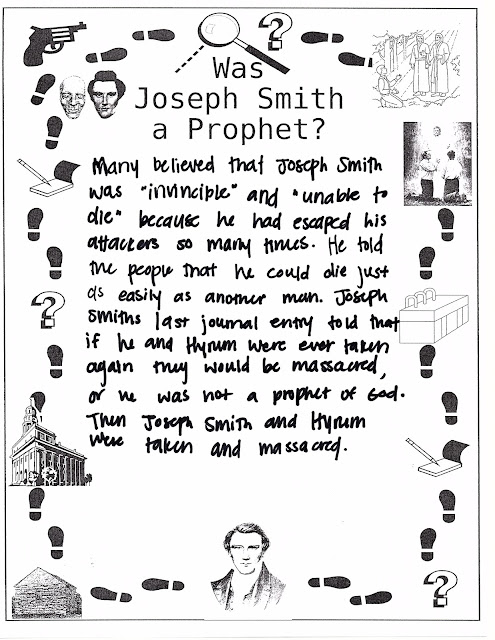 Was
Joseph Smith
a Prophet?
Many believed that Joseph Smith
was "invincible" and "unable to
die" because he had escaped his
attackers so many times. He told
the people that he could die just
as easily as another man. Joseph
Smiths last journal entry told that
if he and Hyrum were ever taken
again they would be massacred,
or he was not a prophet of God.
Then Joseph Smith and Hyrum
were taken and massacred.